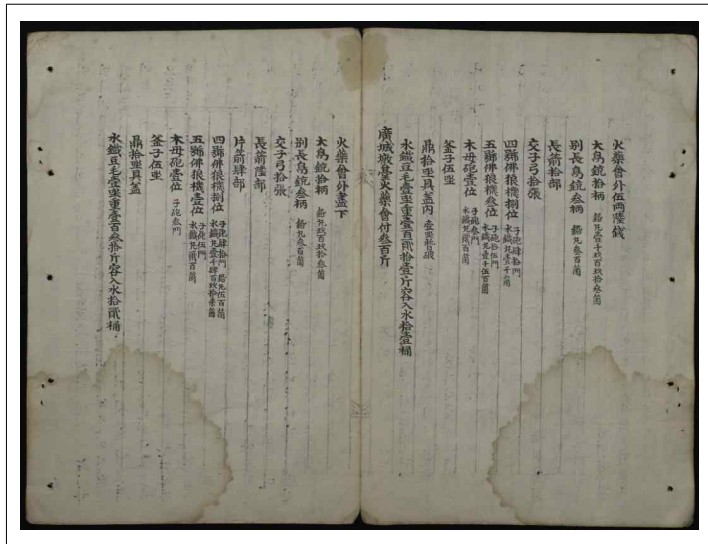 火藥會外伍兩陸戔
大鳥銃拾柄 鉛丸壹千玖百玖拾叁箇
別長鳥銃叁柄 鉛丸叁百箇
交子弓拾張
長箭拾部
四號佛狼機捌位 子砲肆拾門 水鐵丸壹千箇
五號佛狼機叁位 子砲拾伍門 水鐵丸壹千伍百箇
木母砲壹位 子砲叁門 水鐵丸貳百箇
釜子伍坐
鼎拾坐具盖內
水鐵豆毛壹坐重壹百貳拾壹斤容入水拾壹桶
廣城墩臺火藥會付叁百斤
火藥會外盡下
大鳥銃拾柄 鉛丸玖百玖拾叁箇
別長鳥銃叁柄 鉛丸叁百箇
交子弓拾張
長箭陸部
片箭肆部
四號佛狼機捌位 子砲肆拾門 鉛丸伍百箇 水鐵丸壹千肆百玖拾柒箇
五號佛狼機壹位 子砲伍門 水鐵丸貳百箇
木母砲壹位 子砲叁門
釜子伍坐
鼎拾坐具盖
水鐵豆毛壹坐重壹百叁拾斤容入水拾貳桶